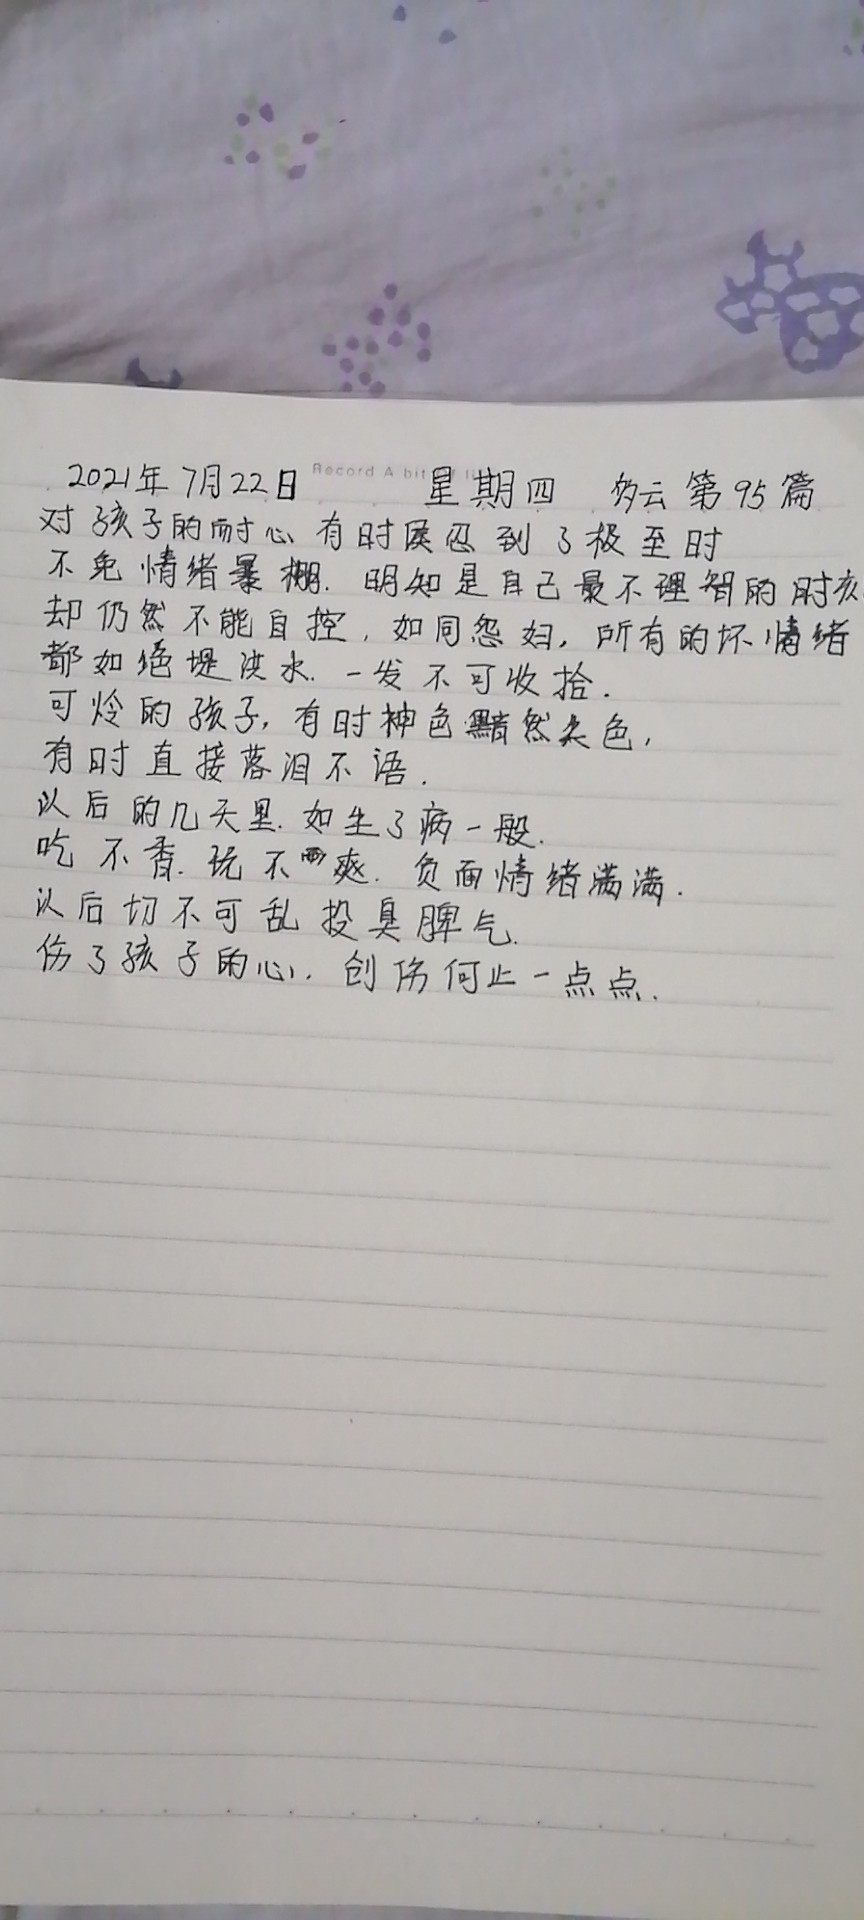 Record A bit of li
2021年7月22日 星期四 多云 第95篇
对孩子的耐心有时侯忍到了极至时
不免情绪暴棚.明知是自己最不理智的时亥
却仍然不能自控,如同怨妇,所有的坏情绪
都如绝堤洪水.一发不可收拾.
可怜的孩子,有时神色黯然失色,
有时直接落泪不语.
以后的几天里.如生了病一般.
吃不香.玩不爽.负面情绪满满.
以后切不可乱投臭脾气.
伤了孩子的心,创伤何止一点点.